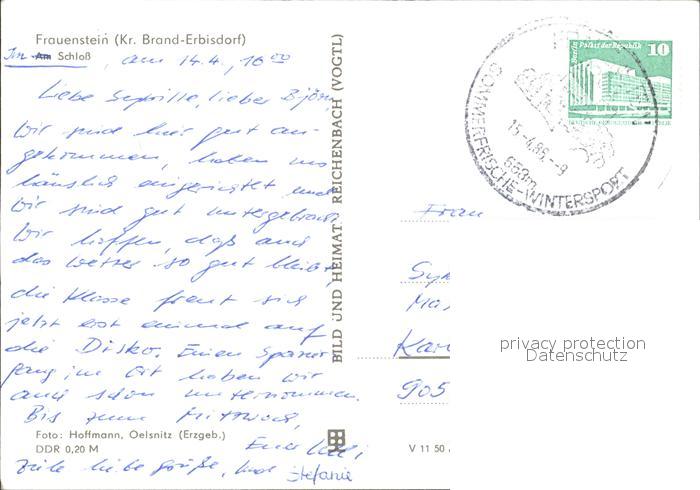 Frauenstein (Kr. Brand-Erbisdorf)
Im Am Schloß
am 14.4., 16 00
Liebe Sybille, lieber Björn,
Wir sind hier gut an-
gekommen, haben uns
häuslich eingerichtet und
wir sind gut untergebracht
Wir hoffen, daß auch
das Wetter so gut bleibt,
die Klasse freut sich
jetzt erst einmal auf
die Disko. Einen Spazier-
gang im Ort haben wir
auch schon unternommen.
Bis zum Mittwoch,
Foto: Hoffmann, Oelsnitz (Erzgeb.)
DDR 0,20 M
viele liebe Grüße, und Stefanie
BILD UND HEIMAT REICHENBACH (VOGTL)
V 11 50
Berlin Palast der Republik
10
15.-4.86.-9
653m
SOMMERFRISCHE-WINTERSPORT
Frau
Sy
Ma
Kar
905
privacy protection
Datenschutz